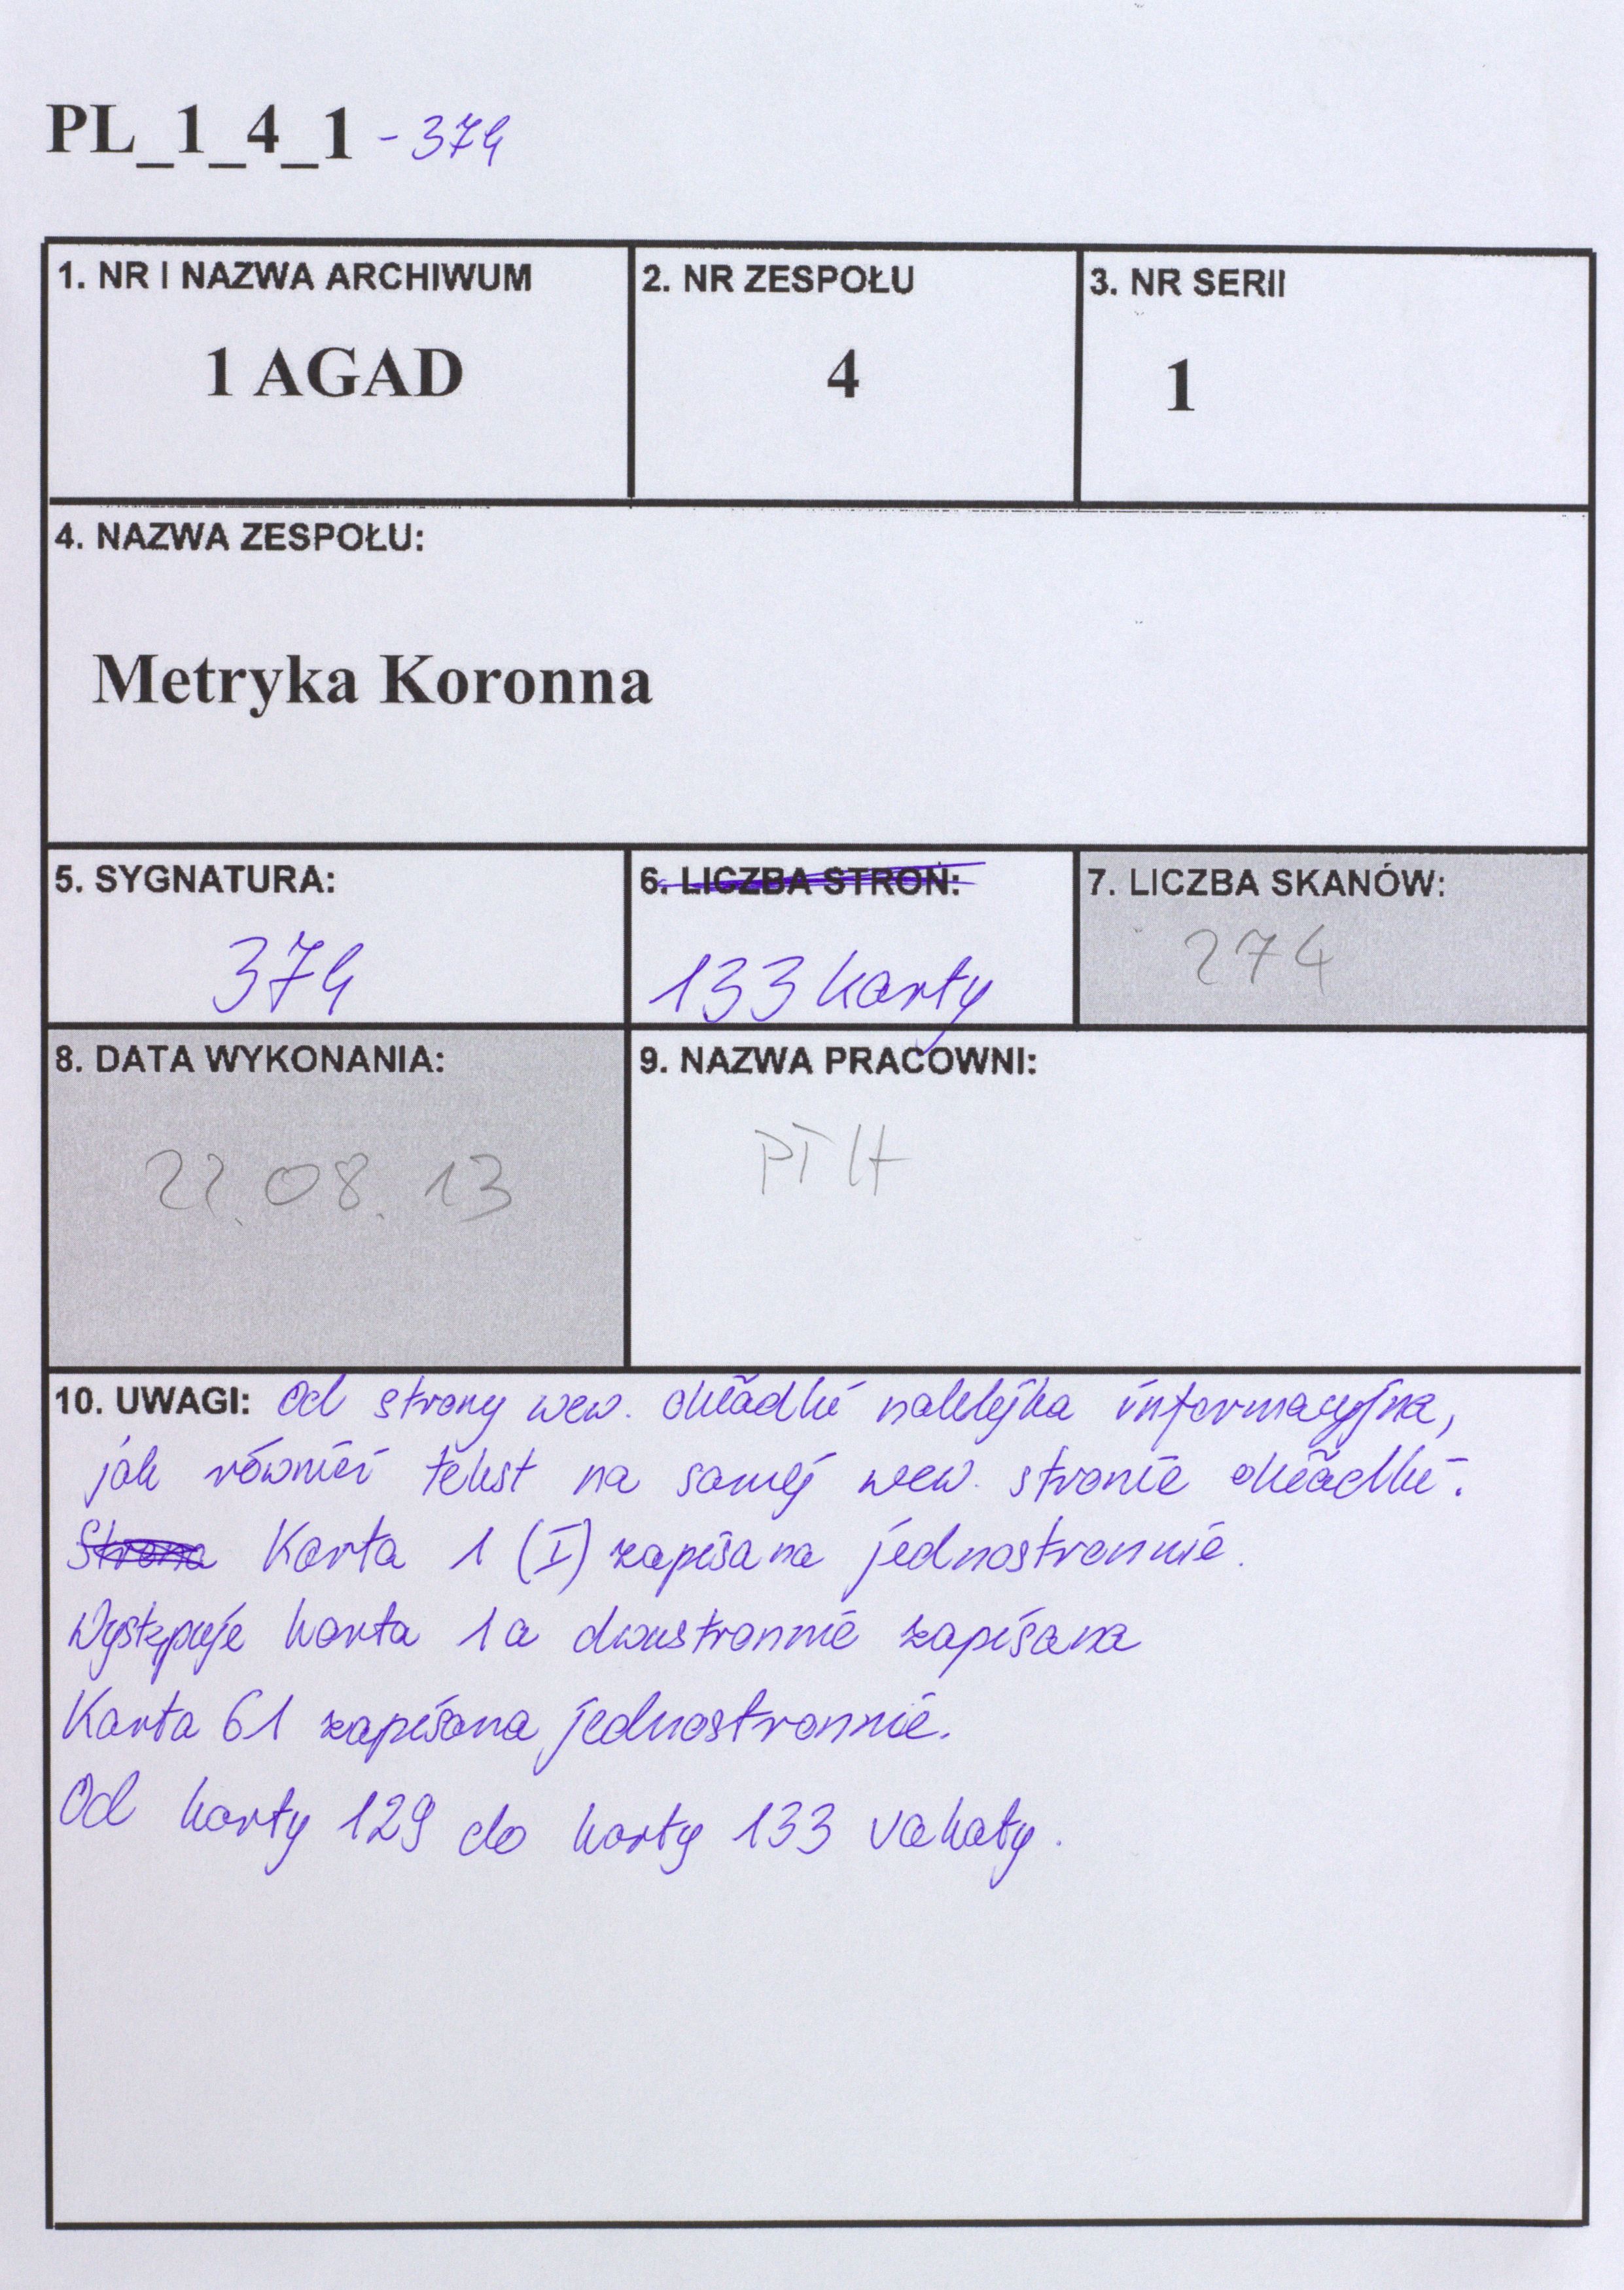 PL_1_4_1 - 374
1. NR I NAZWA ARCHIWUM
1 AGAD
2. NR ZESPOŁU
4
3. NR SERII
1
4. NAZWA ZESPOŁU:
Metryka Koronna
5. SYGNATURA:
374
6. LICZBA STRON:
133 karty
7. LICZBA SKANÓW:
274
8. DATA WYKONANIA:
22.08.13
9. NAZWA PRACOWNI:
PTH
10. UWAGI: Od strony wew. okładki naklejka informacyjna,
jak również tekst na samej wew. stronie okładki.
Strona Karta 1 (I) zapisana jednostronnie.
Występuje karta 1a dwustronnie zapisana
Karta 61 zapisana jednostronnie.
Od karty 129 do karty 133 vakaty.